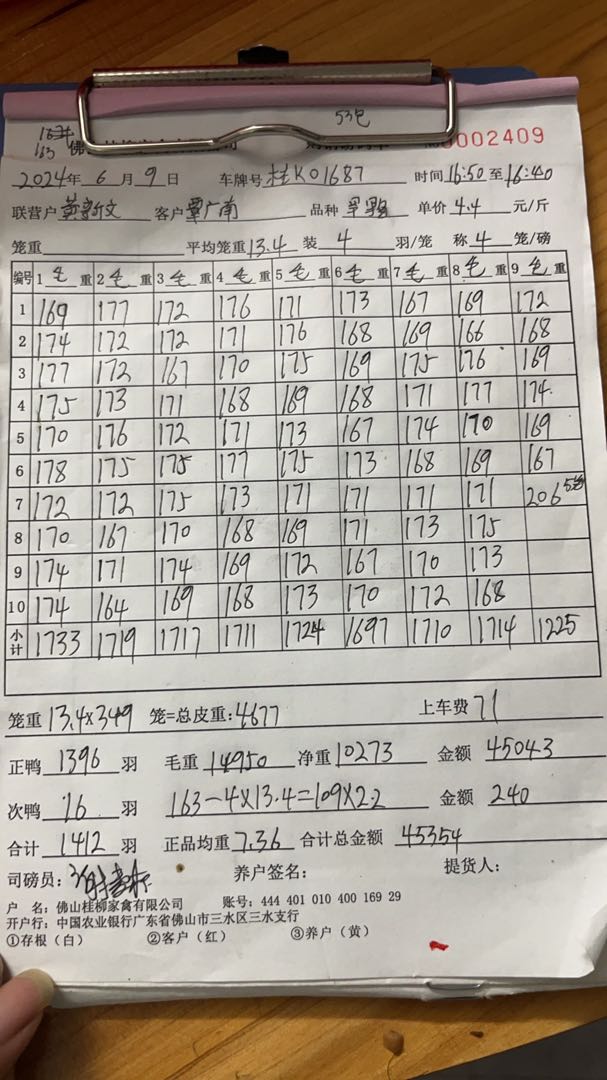 53包
163
0002409
2024年 6 月 9 日 车牌号 桂K01687 时间16:50至16:40
联营户 黄新文 客户 覃广南 品种 单价 4.4 元/斤
笼重 平均笼重13.4 装 4 羽/笼 称 4 笼/磅
编号 1 毛 重 2 毛 重 3 毛 重 4 毛 重 5 毛 重 6 毛 重 7 毛 重 8 毛 重 9 毛 重
1 169 177 172 176 171 173 167 169 172
2 174 172 172 171 176 168 169 166 168
3 177 172 167 170 175 169 175 176 169
4 175 173 171 168 169 168 171 177 174
5 170 176 172 171 173 167 174 170 169
6 178 175 175 177 175 173 168 169 167
7 172 172 175 173 171 171 171 171 206 5笼
8 170 167 170 168 169 171 173 175
9 174 171 174 169 172 167 170 173
10 174 164 169 168 173 170 172 168
小计 1733 1719 1717 1711 1724 1697 1710 1714 1225
笼重 13.4×349 笼=总皮重:4677 上车费 71
正鸭 1396 羽 毛重 14950 净重 10273 金额 45043
次鸭 16 羽 163-4×13.4=109×2.2 金额 240
合计 1412 羽 正品均重 7.36 合计总金额 45354
司磅员: 养户签名: 提货人:
户 名: 佛山桂柳家禽有限公司 账号: 444 401 010 400 169 29
开户行: 中国农业银行广东省佛山市三水区三水支行
①存根（白） ②客户（红） ③养户（黄）